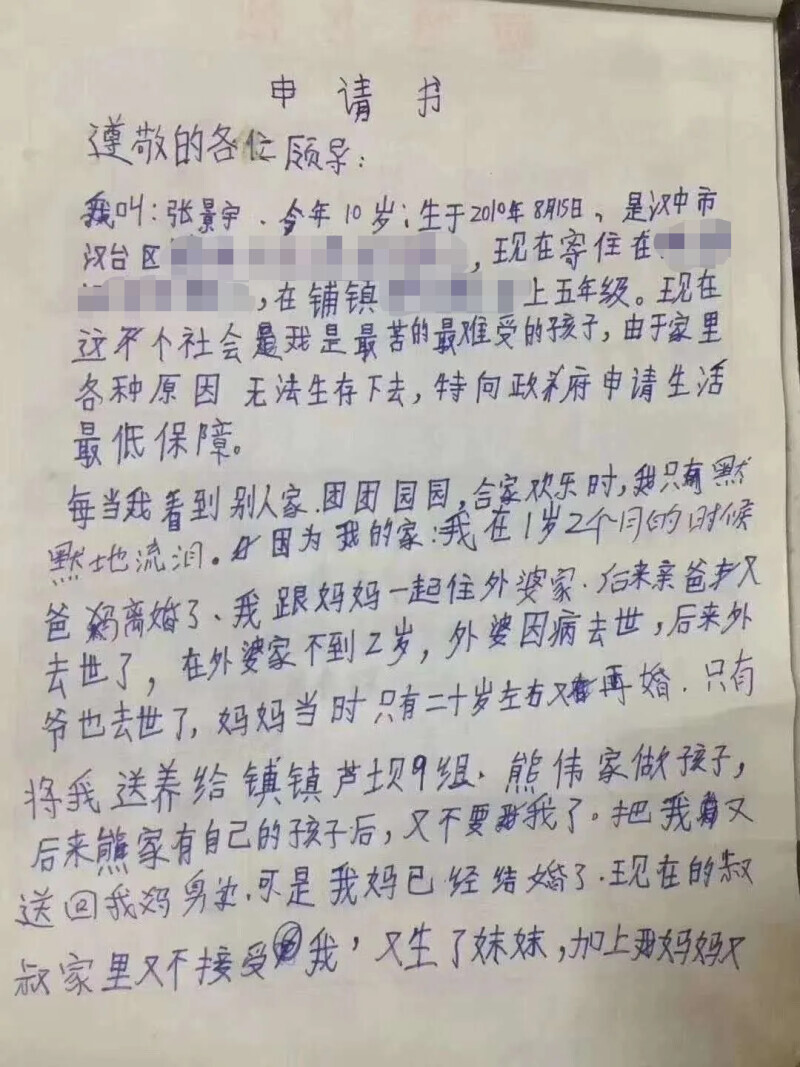 申请书
遵敬的各位领导：
我叫：张景宇．今年10岁；生于2010年8月15日，是汉中市
汉台区，现在寄住在
，在铺镇上五年级。现在
这个社会我是最苦的最难受的孩子，由于家里
各种原因 无法生存下去，特向政府申请生活
最低保障。
每当我看到别人家．团团园园，合家欢乐时，我只有默
默地流泪。因为我的家：我在1岁2个月的时候
爸妈离婚了、我跟妈妈一起住外婆家．后来亲爸又
去世了，在外婆家不到2岁，外婆因病去世，后来外
爷也去世了，妈妈当时只有二十岁左右又再婚．只有
将我送养给镇镇芦坝9组．熊伟家做孩子，
后来熊家有自己的孩子后，又不要我了。把我又
送回我妈身边．可是我妈已经结婚了．现在的叔
叔家里又不接受我，又生了妹妹，加上妈妈又